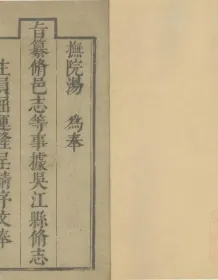 撫院湯　為奉
上旨纂脩邑志等事據吳江縣脩志
生員屈運隆呈請序文奉